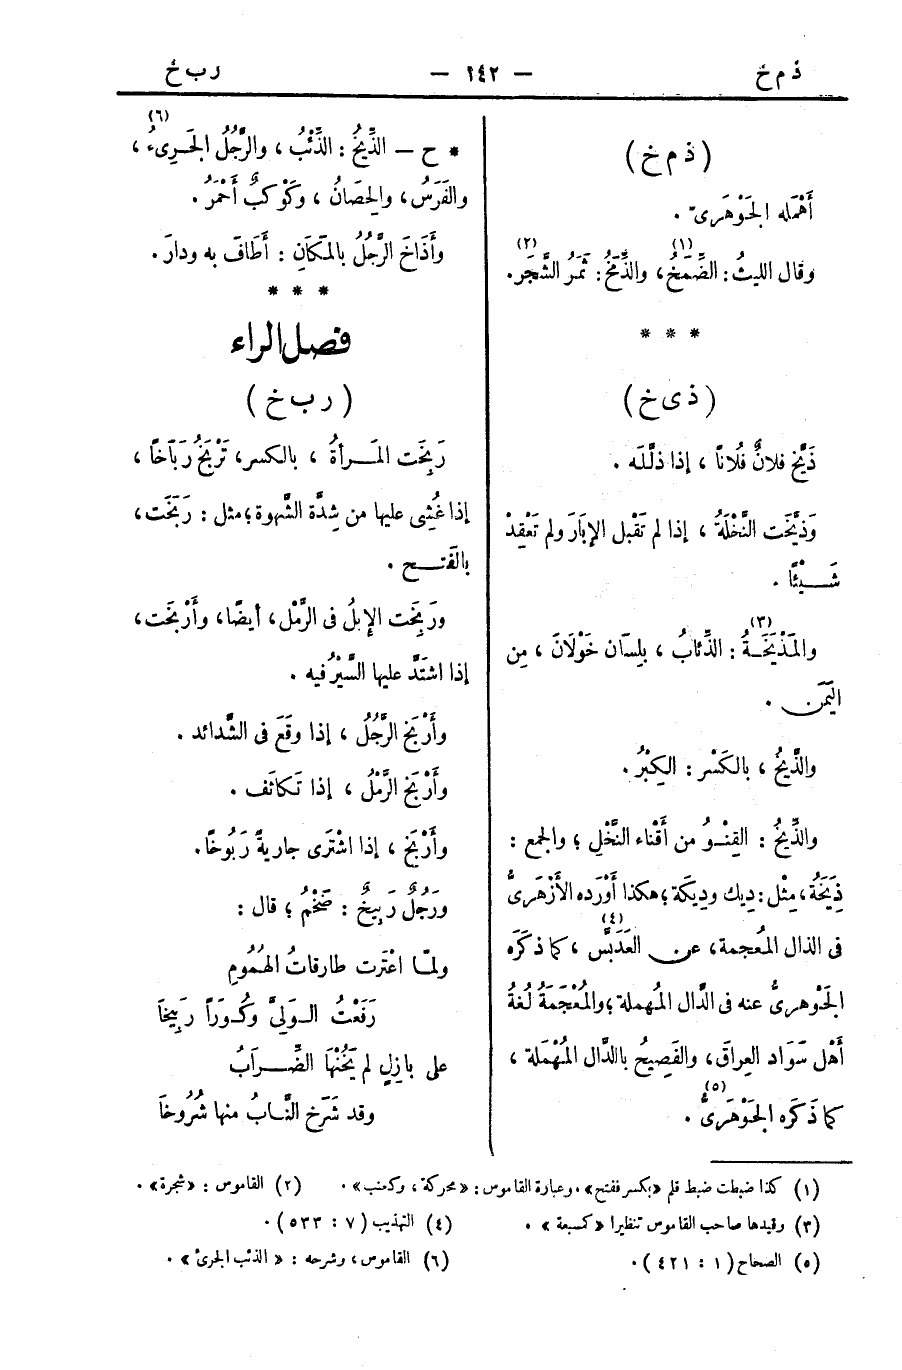 ذ م خ — ١٤٢ — ر ب خ
(ذ م خ)
أَهْمَله الجَوْهَرِىّ .
وقال الليثُ : الضِّمَخُ(١)، والذِّمَخُ : ثَمَرُ الشَّجَر(٢).
* * *
(ذ ى خ)
ذَيَّخ فلانٌ فُلانًا ، إذا ذلَّلَه .
وَذَيَّخَت النَّخْلَةُ ، إذا لم تَقْبل الإبَارَ ولم تَعْقِدْ
شَــيْئًا .
والمَذْيَخَــةُ(٣) : الذِّئابُ ، بلِسَان خَوْلَانَ ، مِن
اليَمَن .
والذِّيخُ ، بالكَسْر : الكِبْرُ .
والذِّيخُ : القِنْــوُ من أَقْناء النَّخْلِ ؛ والجمع :
ذِيَخَةُ ، مِثْل : دِيك ودِيكَة ؛ هكذا أَوْرَده الأَزْهَرِىُّ
فى الذال المُعجمة ، عن العَدَبَّس(٤) ، كما ذكَرَه
الجَوْهَرِىُّ عنه فى الدَّال المُهملة ؛ والمُعْجَمَةُ لُغةُ
أَهْل سَوَاد العِراق ، والفَصِيحُ بالدَّال المُهْمَلة ،
كما ذَكَره الجَوْهَرِىُّ(٥) .
* ح — الذِّيخُ : الذِّئْبُ ، والرَّجُلُ الجَــرِىءُ(٦) ،
والفَرَسُ ، والحِصَانُ ، وكَوْكبٌ أَحْمَرُ .
وأَذَاخَ الرَّجُلُ بالمَكَانِ : أَطَافَ به ودارَ .
* * *
فصل الراء
(ر ب خ)
رَبِخَت المَــرأةُ ، بالكسر، تَرْبَخُ رَبَاخًا ،
إذا غُشِى عليها من شِدَّة الشَّهوة ؛ مثل : رَبَخَت ،
بالفَتــح .
ورَبِخَت الإبلُ فى الرَّمْل ، أيضًا ، وأَرْبَخَت ،
إذا اشتَدَّ عليها السَّيْرُ فيه .
وأَرْبَخ الرَّجُلُ ، إذا وقَعَ فى الشَّدائد .
وأَرْبَخ الرَّمْلُ ، إذا تَكاثَف .
وأَرْبَخ ، إذا اشْتَرى جاريةً رَبُوخًا .
ورَجُلٌ رَبِيخٌ : ضَخْمٌ ؛ قال :
ولمّا اعْتَرَت طارقاتُ الهُمُومِ
رَفَعْتُ الــوَلِىَّ وكُــورَاً رَبِيخَا
على بازِلٍ لم يَخُنْها الضِّــرَابُ
وقد شَرَّخ النَّـابُ منها شُرُوخَا
(١) كذا ضبطت ضبط قلم «بكسر ففتح» . وعبارة القاموس : «محركة ، وكعنب» . (٢) القاموس : «شجرة» .
(٣) وقيدها صاحب القاموس تنظيرا «كمسبعة» . (٤) التهذيب (٧ : ٥٣٣) .
(٥) الصحاح (١ : ٤٢١) . (٦) القاموس ، وشرحه : «الذئب الجرئ» .